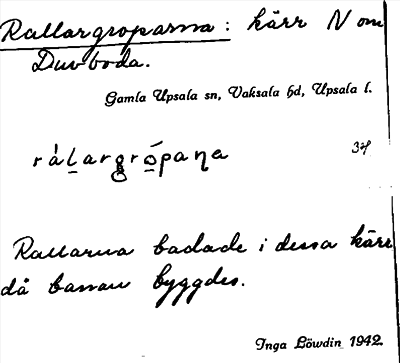 Rallargroparna: kärr N om
Duvboda.
Gamla Upsala sn, Vaksala hd, Upsala l.
rálargrópaṇa
Rallarna badade i dessa kärr
då banan byggdes.
Inga Löwdin 1942.